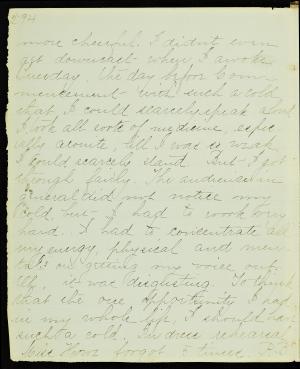 94
more cheerful. I didn't even
get downcast when I awoke
Tuesday, the day before Com-
mencement with such a cold
that I could scarcely speak aloud.
I took all sorts of medicine, espec
ially aconite, till I was so weak
I could scarcely stand. But I got
through fairly. The audience in
general did not notice my
cold, but I had to work very
hard. I had to concentrate all
my energy, physical and men-
tal on getting my voice out.
it was disgusting. To think
that the one opportunity I had
in my whole life, I should have
such a cold. In dress rehearsal
Miss forgot 2 times.